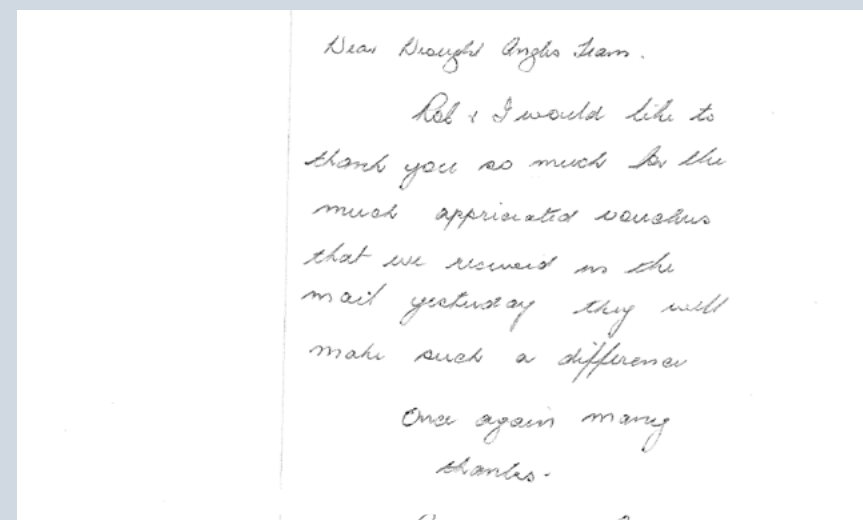 Dear Drought Angles Team.
Rob & I would like to
thank you so much for the
much appriciated vouchers
that we received in the
mail yesterday they will
make such a difference
Once again many
thanks.